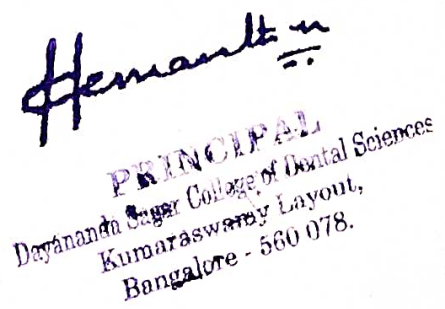 Hemanth n
PRINCIPAL
Dayananda Sagar College of Dental Sciences
Kumaraswamy Layout,
Bangalore - 560 078.